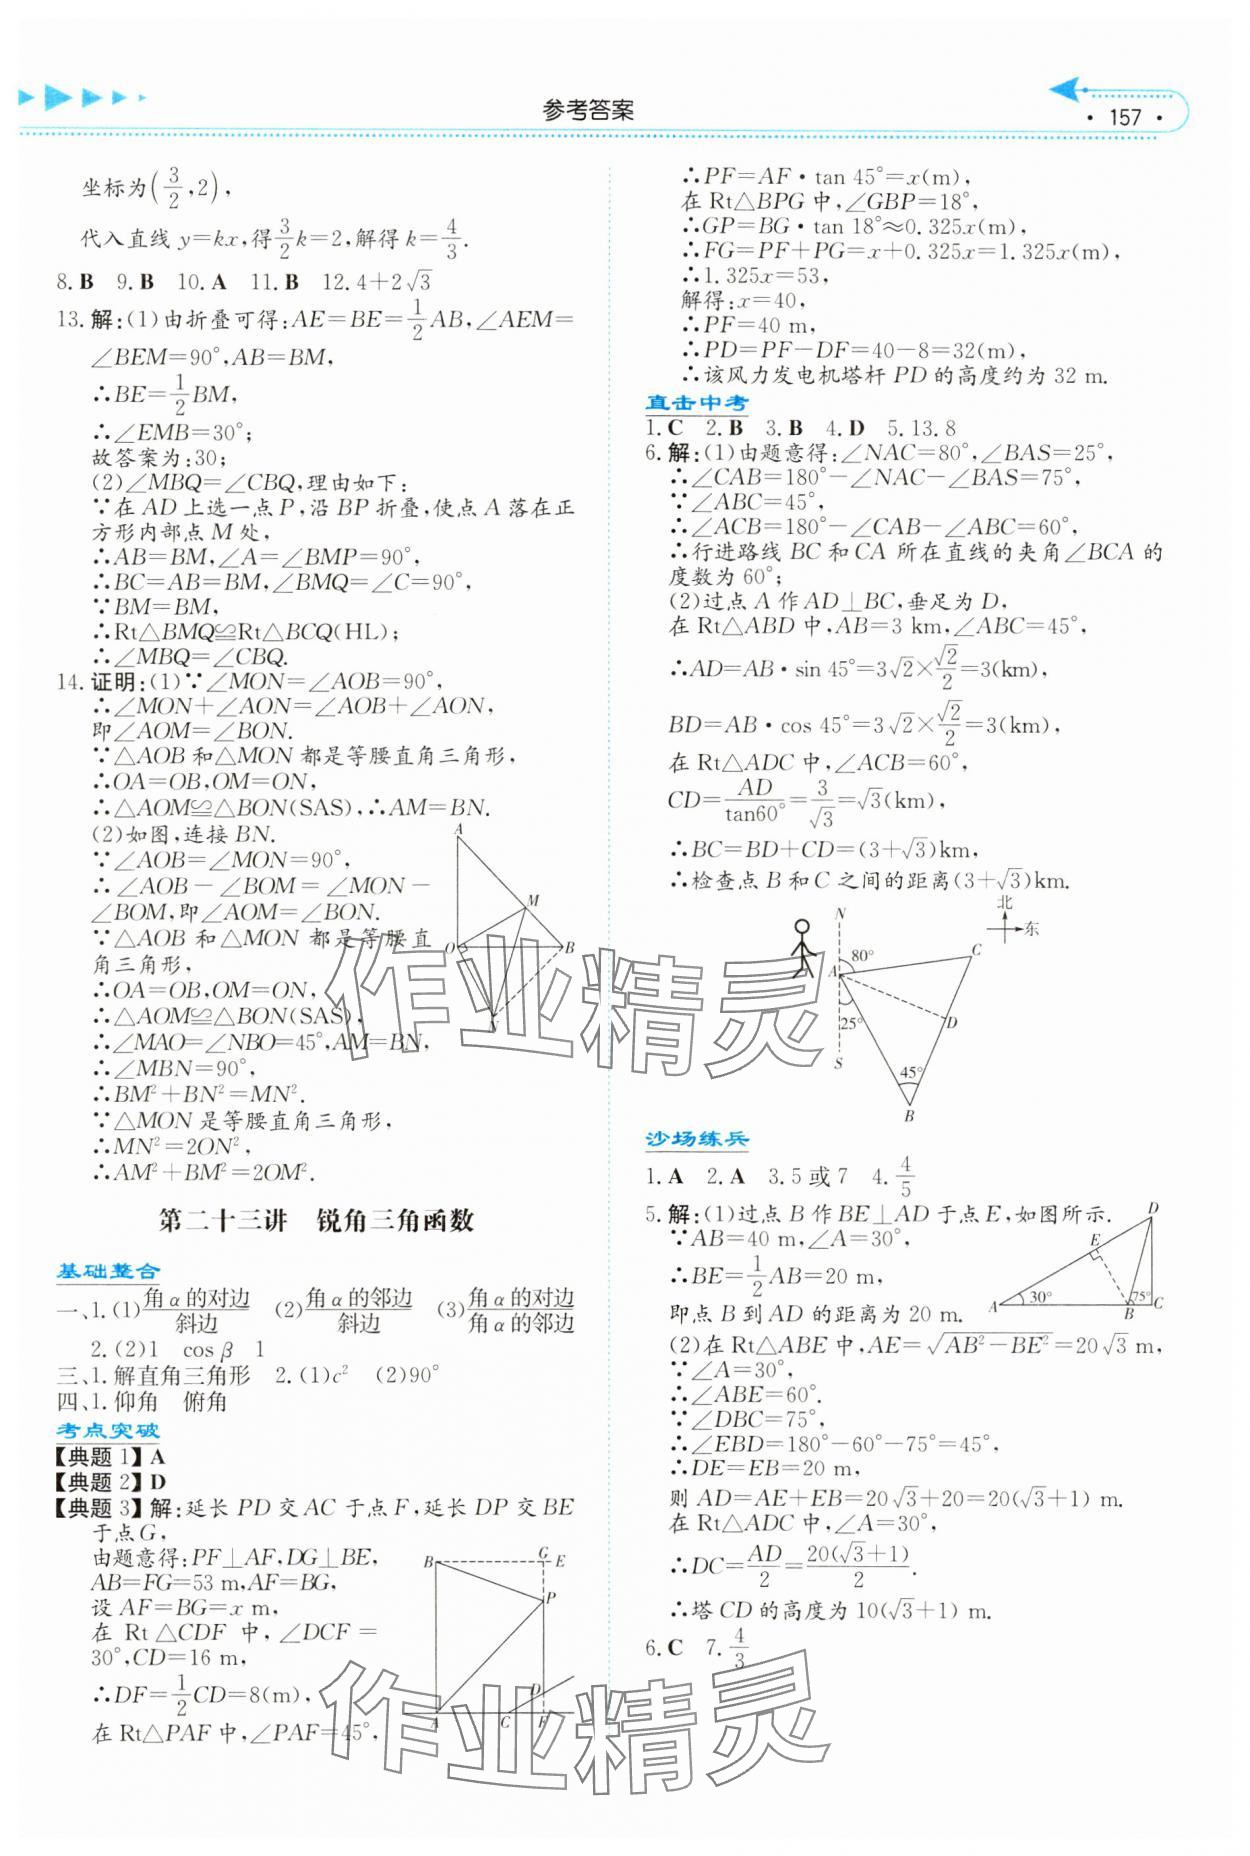 参考答案
· 157 ·
坐标为(3/2,2),
代入直线 y=kx,得3/2k=2,解得k=4/3.
8.B 9.B 10.A 11.B 12.4+2√3
13.解:(1)由折叠可得:AE=BE=1/2AB,∠AEM=
∠BEM=90°,AB=BM,
∴BE=1/2BM,
∴∠EMB=30°;
故答案为:30;
(2)∠MBQ=∠CBQ,理由如下:
∵在AD上选一点P,沿BP折叠,使点A落在正
方形内部点M处,
∴AB=BM,∠A=∠BMP=90°,
∴BC=AB=BM,∠BMQ=∠C=90°,
∵BM=BM,
∴Rt△BMQ≌Rt△BCQ(HL);
∴∠MBQ=∠CBQ.
14.证明:(1)∵∠MON=∠AOB=90°,
∴∠MON+∠AON=∠AOB+∠AON,
即∠AOM=∠BON.
∵△AOB和△MON都是等腰直角三角形,
∴OA=OB,OM=ON,
∴△AOM≌△BON(SAS),∴AM=BN.
(2)如图,连接BN.
∵∠AOB=∠MON=90°,
∴∠AOB-∠BOM=∠MON-
∠BOM,即∠AOM=∠BON.
∵△AOB和△MON都是等腰直
角三角形,
∴OA=OB,OM=ON,
∴△AOM≌△BON(SAS),
∴∠MAO=∠NBO=45°,AM=BN,
∴∠MBN=90°,
∴BM²+BN²=MN².
∵△MON是等腰直角三角形,
∴MN²=2ON²,
∴AM²+BM²=2OM².
A
M
O
B
N
第二十三讲 锐角三角函数
基础整合
一、1.(1)角α的对边/斜边 (2)角α的邻边/斜边 (3)角α的对边/角α的邻边
2.(2)1 cosβ 1
三、1.解直角三角形 2.(1)c² (2)90°
四、1.仰角 俯角
考点突破
【典题1】A
【典题2】D
【典题3】解:延长PD交AC于点F,延长DP交BE
于点G,
由题意得:PF⊥AF,DG⊥BE,
AB=FG=53 m,AF=BG,
设AF=BG=x m,
在Rt△CDF中,∠DCF=
30°,CD=16 m,
∴DF=1/2CD=8(m),
在Rt△PAF中,∠PAF=45°,
B
G
E
P
D
A
C
F
∴PF=AF·tan 45°=x(m),
在Rt△BPG中,∠GBP=18°,
∴GP=BG·tan 18°≈0.325x(m),
∴FG=PF+PG=x+0.325x=1.325x(m),
∴1.325x=53,
解得:x=40,
∴PF=40 m,
∴PD=PF-DF=40-8=32(m),
∴该风力发电机塔杆PD的高度约为32 m.
直击中考
1.C 2.B 3.B 4.D 5.13.8
6.解:(1)由题意得:∠NAC=80°,∠BAS=25°,
∴∠CAB=180°-∠NAC-∠BAS=75°,
∵∠ABC=45°,
∴∠ACB=180°-∠CAB-∠ABC=60°,
∴行进路线BC和CA所在直线的夹角∠BCA的
度数为60°;
(2)过点A作AD⊥BC,垂足为D,
在Rt△ABD中,AB=3 km,∠ABC=45°,
∴AD=AB·sin 45°=3√2×√2/2=3(km),
BD=AB·cos 45°=3√2×√2/2=3(km),
在Rt△ADC中,∠ACB=60°,
CD=AD/tan60°=3/√3=√3(km),
∴BC=BD+CD=(3+√3)km,
∴检查点B和C之间的距离(3+√3)km.
北
东
N
80°
C
A
25°
D
S
45°
B
沙场练兵
1.A 2.A 3.5或7 4.4/5
5.解:(1)过点B作BE⊥AD于点E,如图所示.
∵AB=40 m,∠A=30°,
∴BE=1/2AB=20 m,
即点B到AD的距离为20 m.
(2)在Rt△ABE中,AE=√AB²-BE²=20√3 m,
∵∠A=30°,
∴∠ABE=60°.
∵∠DBC=75°,
∴∠EBD=180°-60°-75°=45°,
∴DE=EB=20 m,
则AD=AE+EB=20√3+20=20(√3+1) m.
在Rt△ADC中,∠A=30°,
∴DC=AD/2=20(√3+1)/2.
∴塔CD的高度为10(√3+1) m.
D
E
A
30°
75°
B
C
6.C 7.4/3
作业精灵
作业精灵